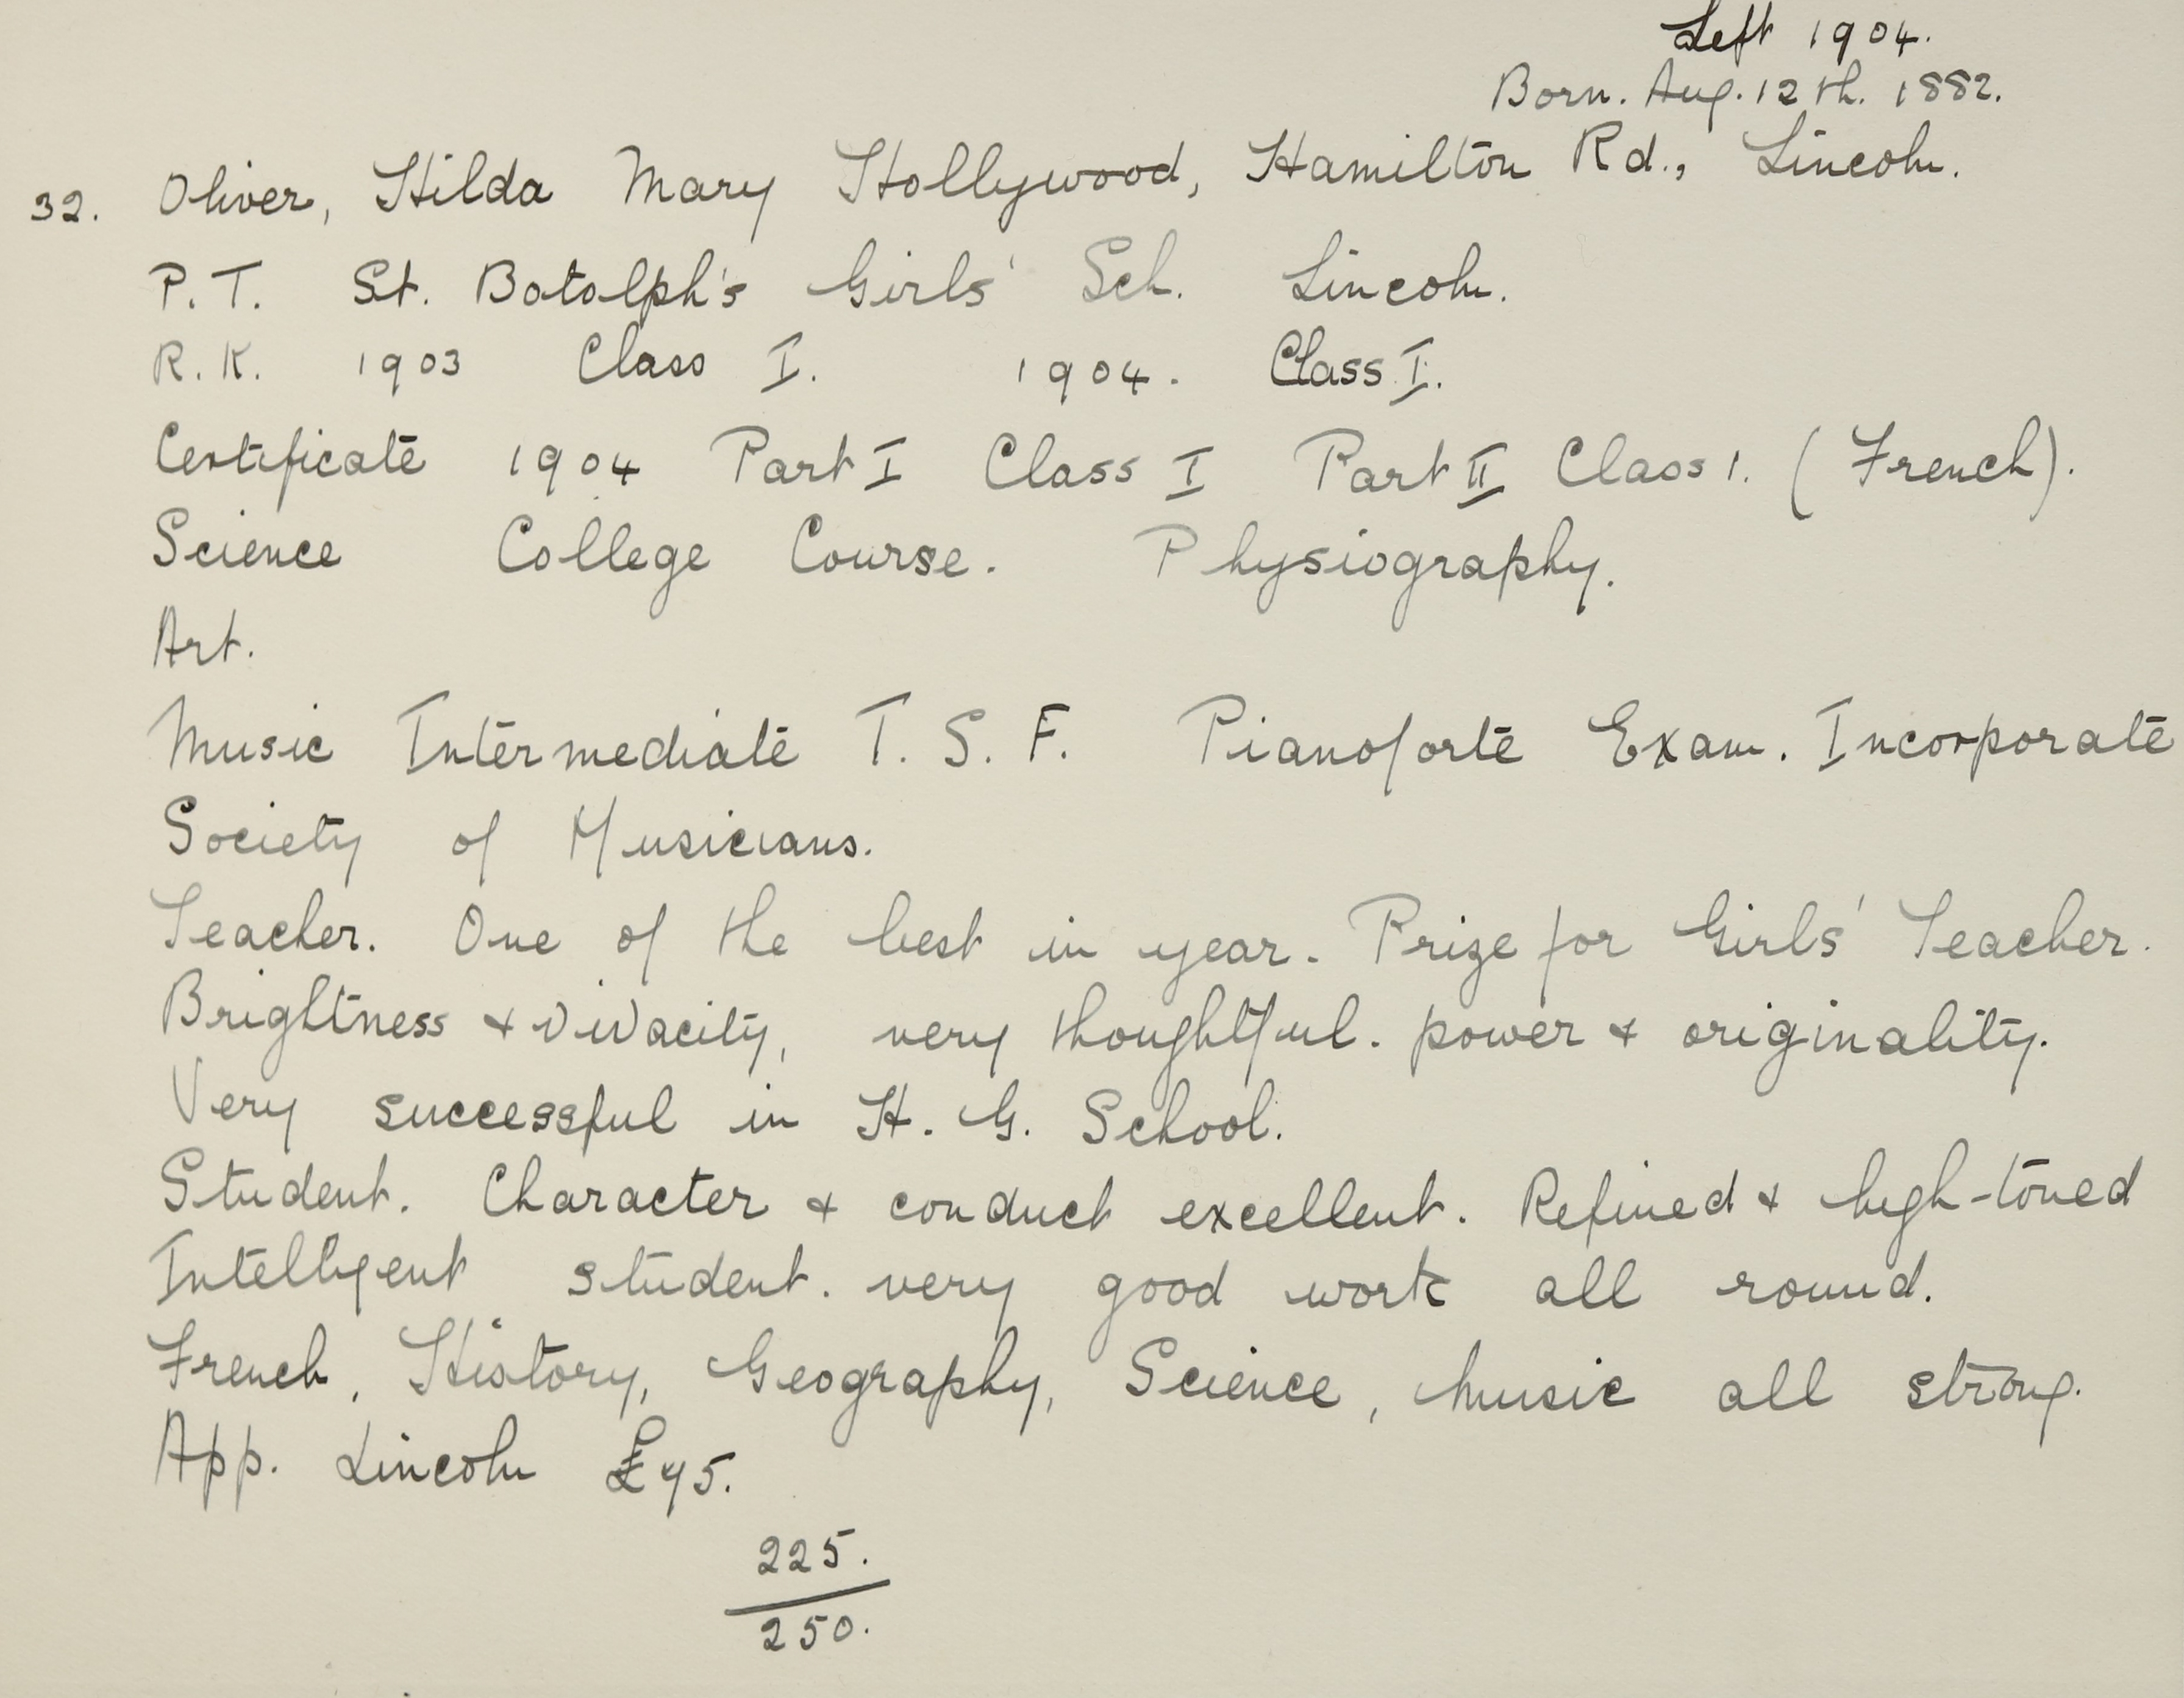 Left 1904.
Born. Aug. 12th. 1882.
32. Oliver, Hilda Mary Hollywood, Hamilton Rd., Lincoln.
P.T. St. Botolph's Girls' Sch. Lincoln.
R.K. 1903 Class I. 1904. Class I.
Certificate 1904 Part I Class I Part II Class 1. (French).
Science College Course. Physiography.
Art.
Music Intermediate T. S. F. Pianoforte Exam. Incorporate
Society of Musicians.
Teacher. One of the best in year. Prize for Girls' Teacher.
Brightness & vivacity, very thoughtful. power & originality.
Very successful in H. G. School.
Student. Character & conduct excellent. Refined & high-toned
Intelligent student. very good work all round.
French, History, Geography, Science, Music all strong.
App. Lincoln
225.
250.